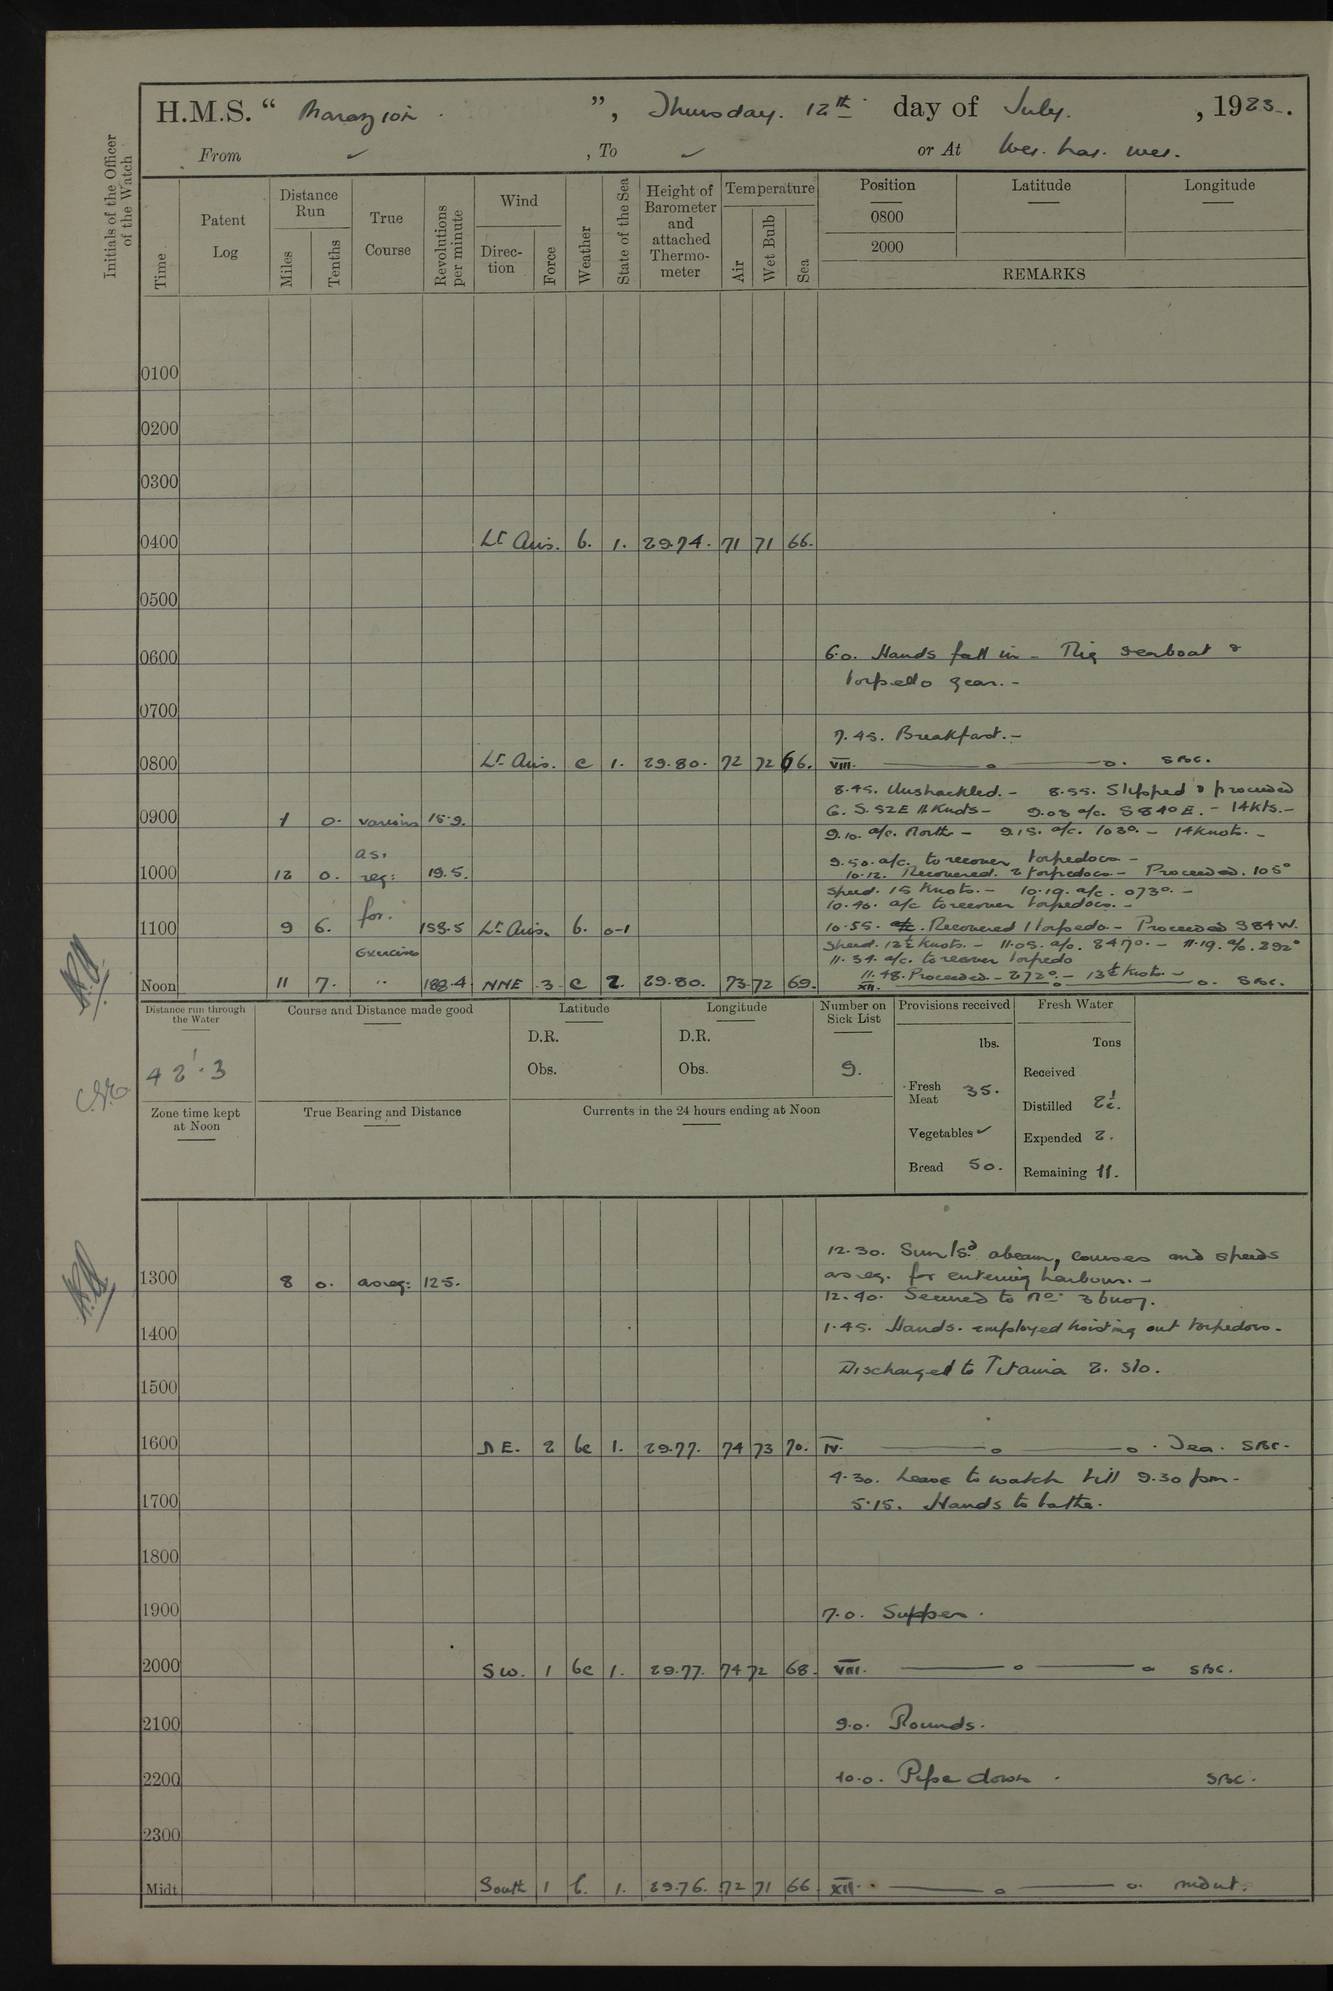 H.M.S. “ Marazion ”, Thursday. 12th day of July. , 1923.
From ✓ , To ✓ or At Wei. hai. wei.
Initials of the Officer of the Watch
Time
Patent Log
Distance Run
Miles
Tenths
True Course
Revolutions per minute
Wind
Direction
Force
Weather
State of the Sea
Height of Barometer and attached Thermometer
Temperature
Air
Wet Bulb
Sea
Position Latitude Longitude
0800
2000
REMARKS
0100
0200
0300
0400 Lt Airs. b. 1. 29.74. 71 71 66.
0500
0600 6.0. Hands fall in - Rig seaboat &
torpedo gear. -
0700
7.45. Breakfast. -
0800 Lt Airs. c 1. 29.80. 72 72 66. VIII. SBC.
8.45. Unshackled. - 8.55. Slipped & proceeded
0900 1 0. various 15.9. S. 52E 11 Knots - 9.03 a/c. S 84° E. - 14 kts. -
9.10. a/c. North - 9.15. a/c. 103°. - 14 Knots. -
as.
9.50. a/c. to recover torpedoes -
1000 12 0. req: 19.5. 10.12. Recovered. 2 torpedoes - Proceeded. 105°
Speed. 15 Knots. - 10.19. a/c. 073°. -
for. 10.40. a/c to recover torpedoes. -
1100 9 6. 153.5 Lt Airs. b. 0-1 10.55. Recovered 1 torpedo. - Proceeded S84W.
Exercises Speed. 12½ Knots. - 11.05. a/c. 247°. - 11.19. a/c. 292°
11.34. a/c. to recover torpedo
11.48. Proceeded. - 272°. - 13½ Knots -
Noon 11 7. " 188.4 NNE 3 c 2. 29.80. 73 72 69. XII. SBC.
Distance run through the Water
42'.3
Course and Distance made good
Latitude
D.R.
Obs.
Longitude
D.R.
Obs.
Number on Sick List
9.
Provisions received
lbs.
Fresh Meat 35.
Vegetables ✓
Bread 50.
Fresh Water
Tons
Received
Distilled 2½.
Expended 2.
Remaining 11.
Zone time kept at Noon
True Bearing and Distance
Currents in the 24 hours ending at Noon
12.30. Sun Isd abeam, courses and speeds
1300 8 0. as req: 125. as req. for entering harbour. -
12.40. Secured to No. 3 buoy.
1400 1.45. Hands. employed hoisting out torpedoes.
Discharged to Titania 2. Sto.
1500
1600 NE. 2 bc 1. 29.77. 74 73 70. IV. Tea. SBC.
4.30. Leave to watch till 9.30 pm -
1700 5.15. Hands to bathe.
1800
1900 7.0. Supper.
2000 SW. 1 bc 1. 29.77. 74 72 68. VIII. SBC.
2100 9.0. Rounds.
2200 10.0. Pipe down. SBC.
2300
Midt South 1 b. 1. 29.76. 72 71 66 XII.